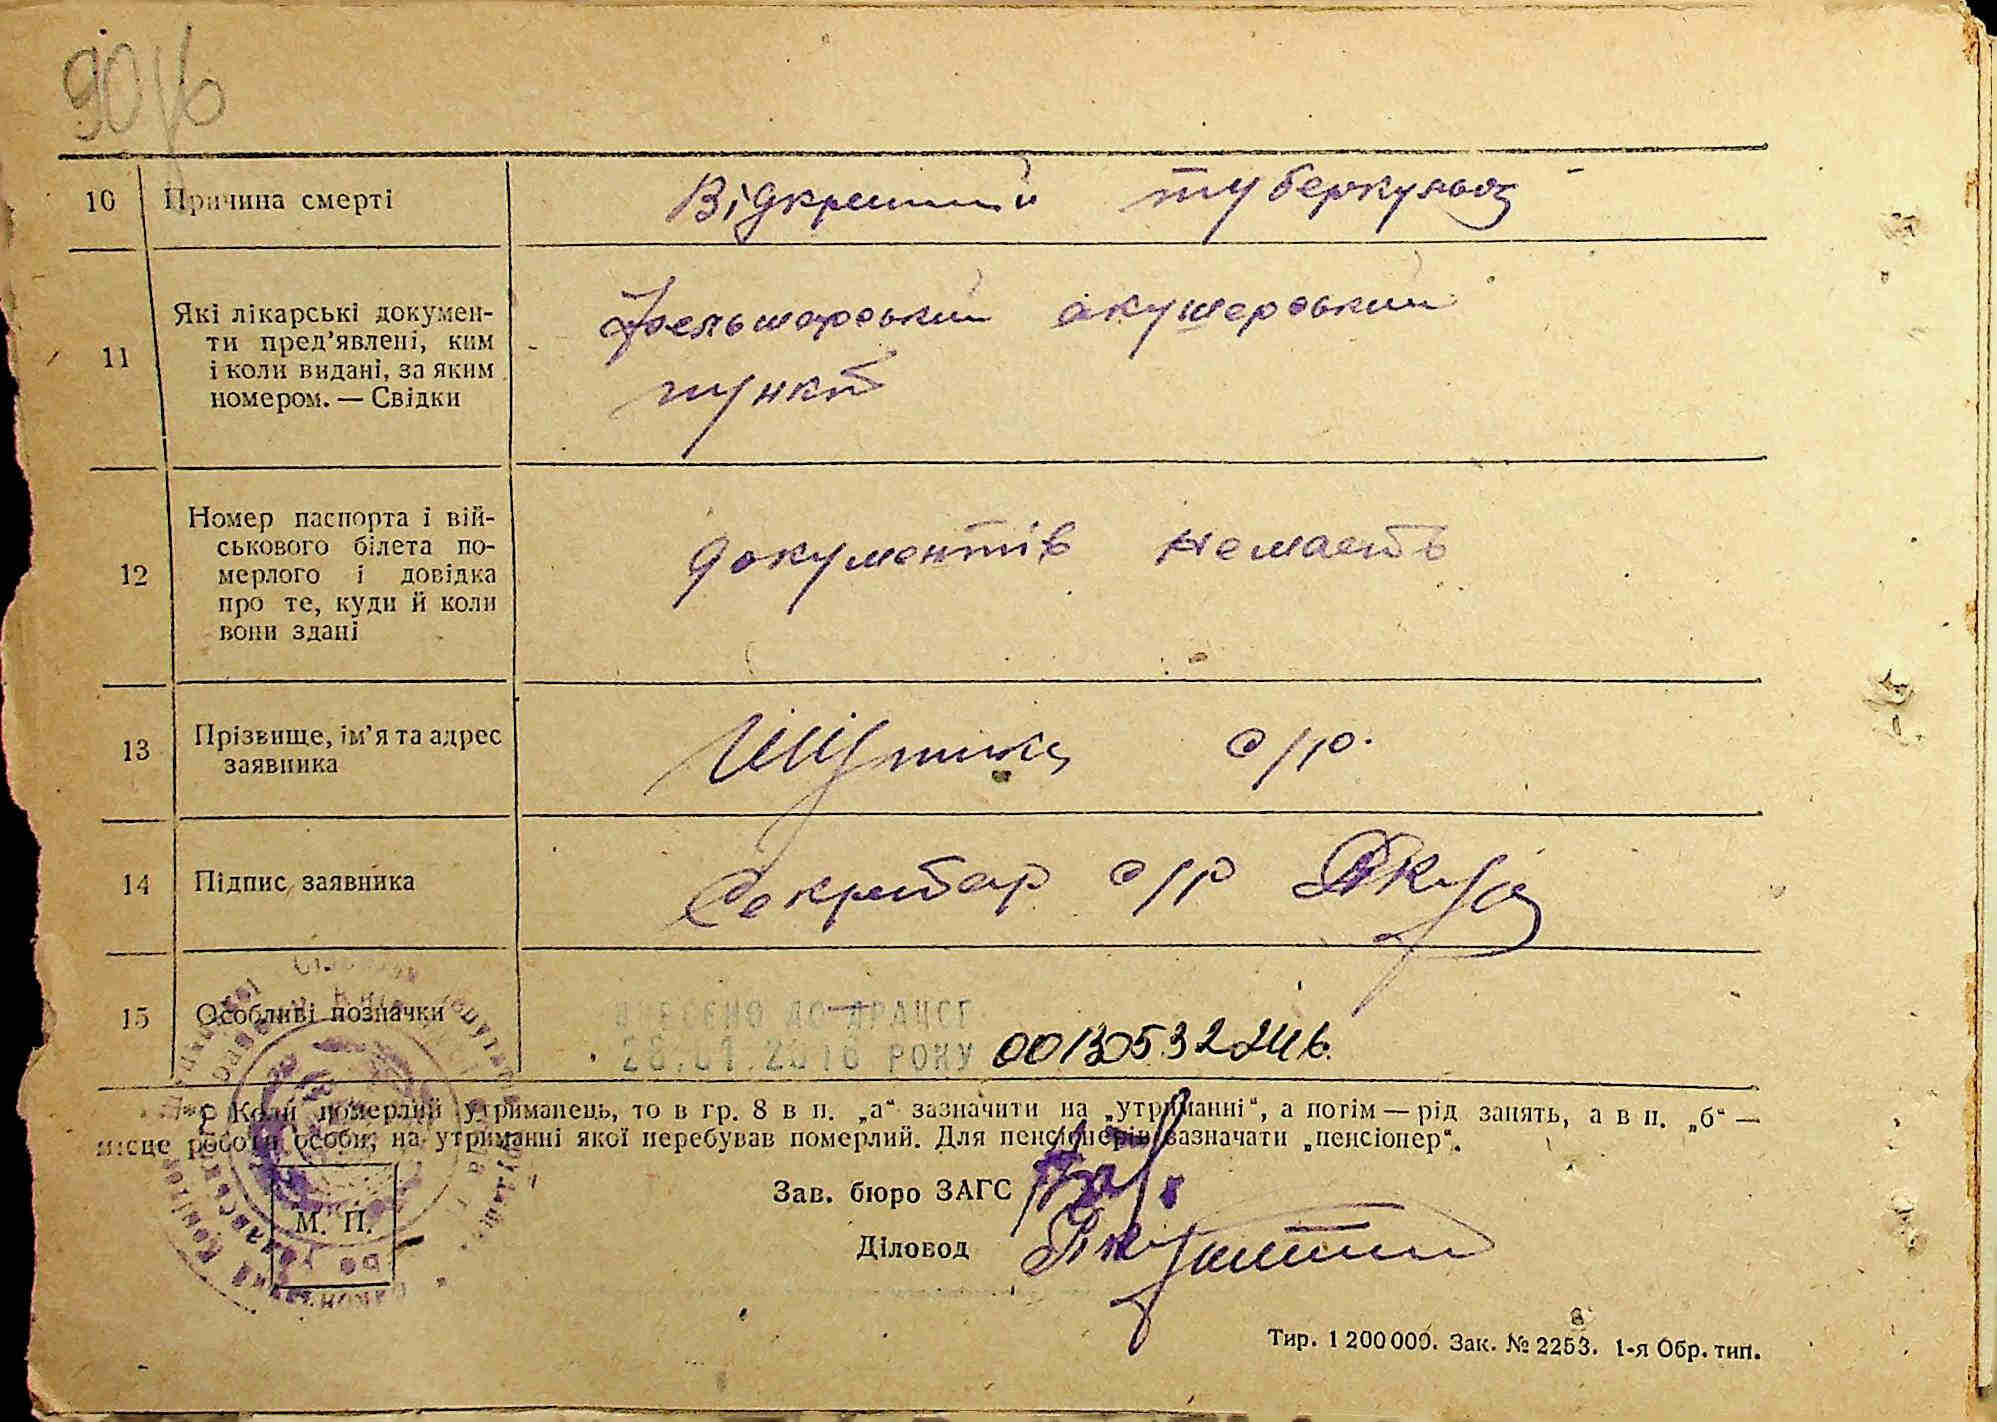 10 Причина смерті Відкритий туберкульоз
11 Які лікарські докумен-
ти пред'явлені, ким
і коли видані, за яким
номером. — Свідки
Фельшарський акушерський
пункт
12 Номер паспорта і вій-
ськового білета по-
мерлого і довідка
про те, куди й коли
вони здані
документів немаєть
13 Прізвище, ім'я та адрес
заявника
с/р.
14 Підпис заявника Секретар с/р
15 Особливі позначки
ВНЕСЕНО ДО ДРАЦСГ
РОКУ
Коли померлий утриманець, то в гр. 8 в п. „а“ зазначити на „утриманні“, а потім — рід занять, а в п. „б“ —
місце роботи особи, на утриманні якої перебував померлий. Для пенсіонерів зазначати „пенсіонер“.
Зав. бюро ЗАГС
М. П.
Діловод
Тир. 1 200 000. Зак. № 2253. 1-я Обр. тип.